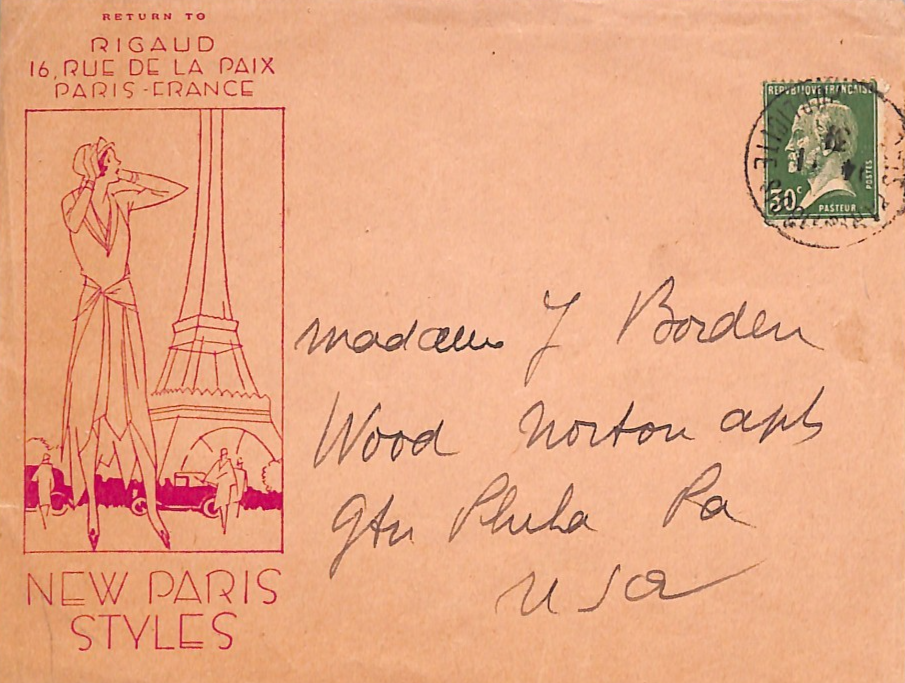 RETURN TO
RIGAUD
16, RUE DE LA PAIX
PARIS-FRANCE
NEW PARIS
STYLES
REPUBLIQUE FRANÇAISE
POSTES
30c
PASTEUR
madame J Borden
Wood Norton apts
Gtn Phila Pa
USA